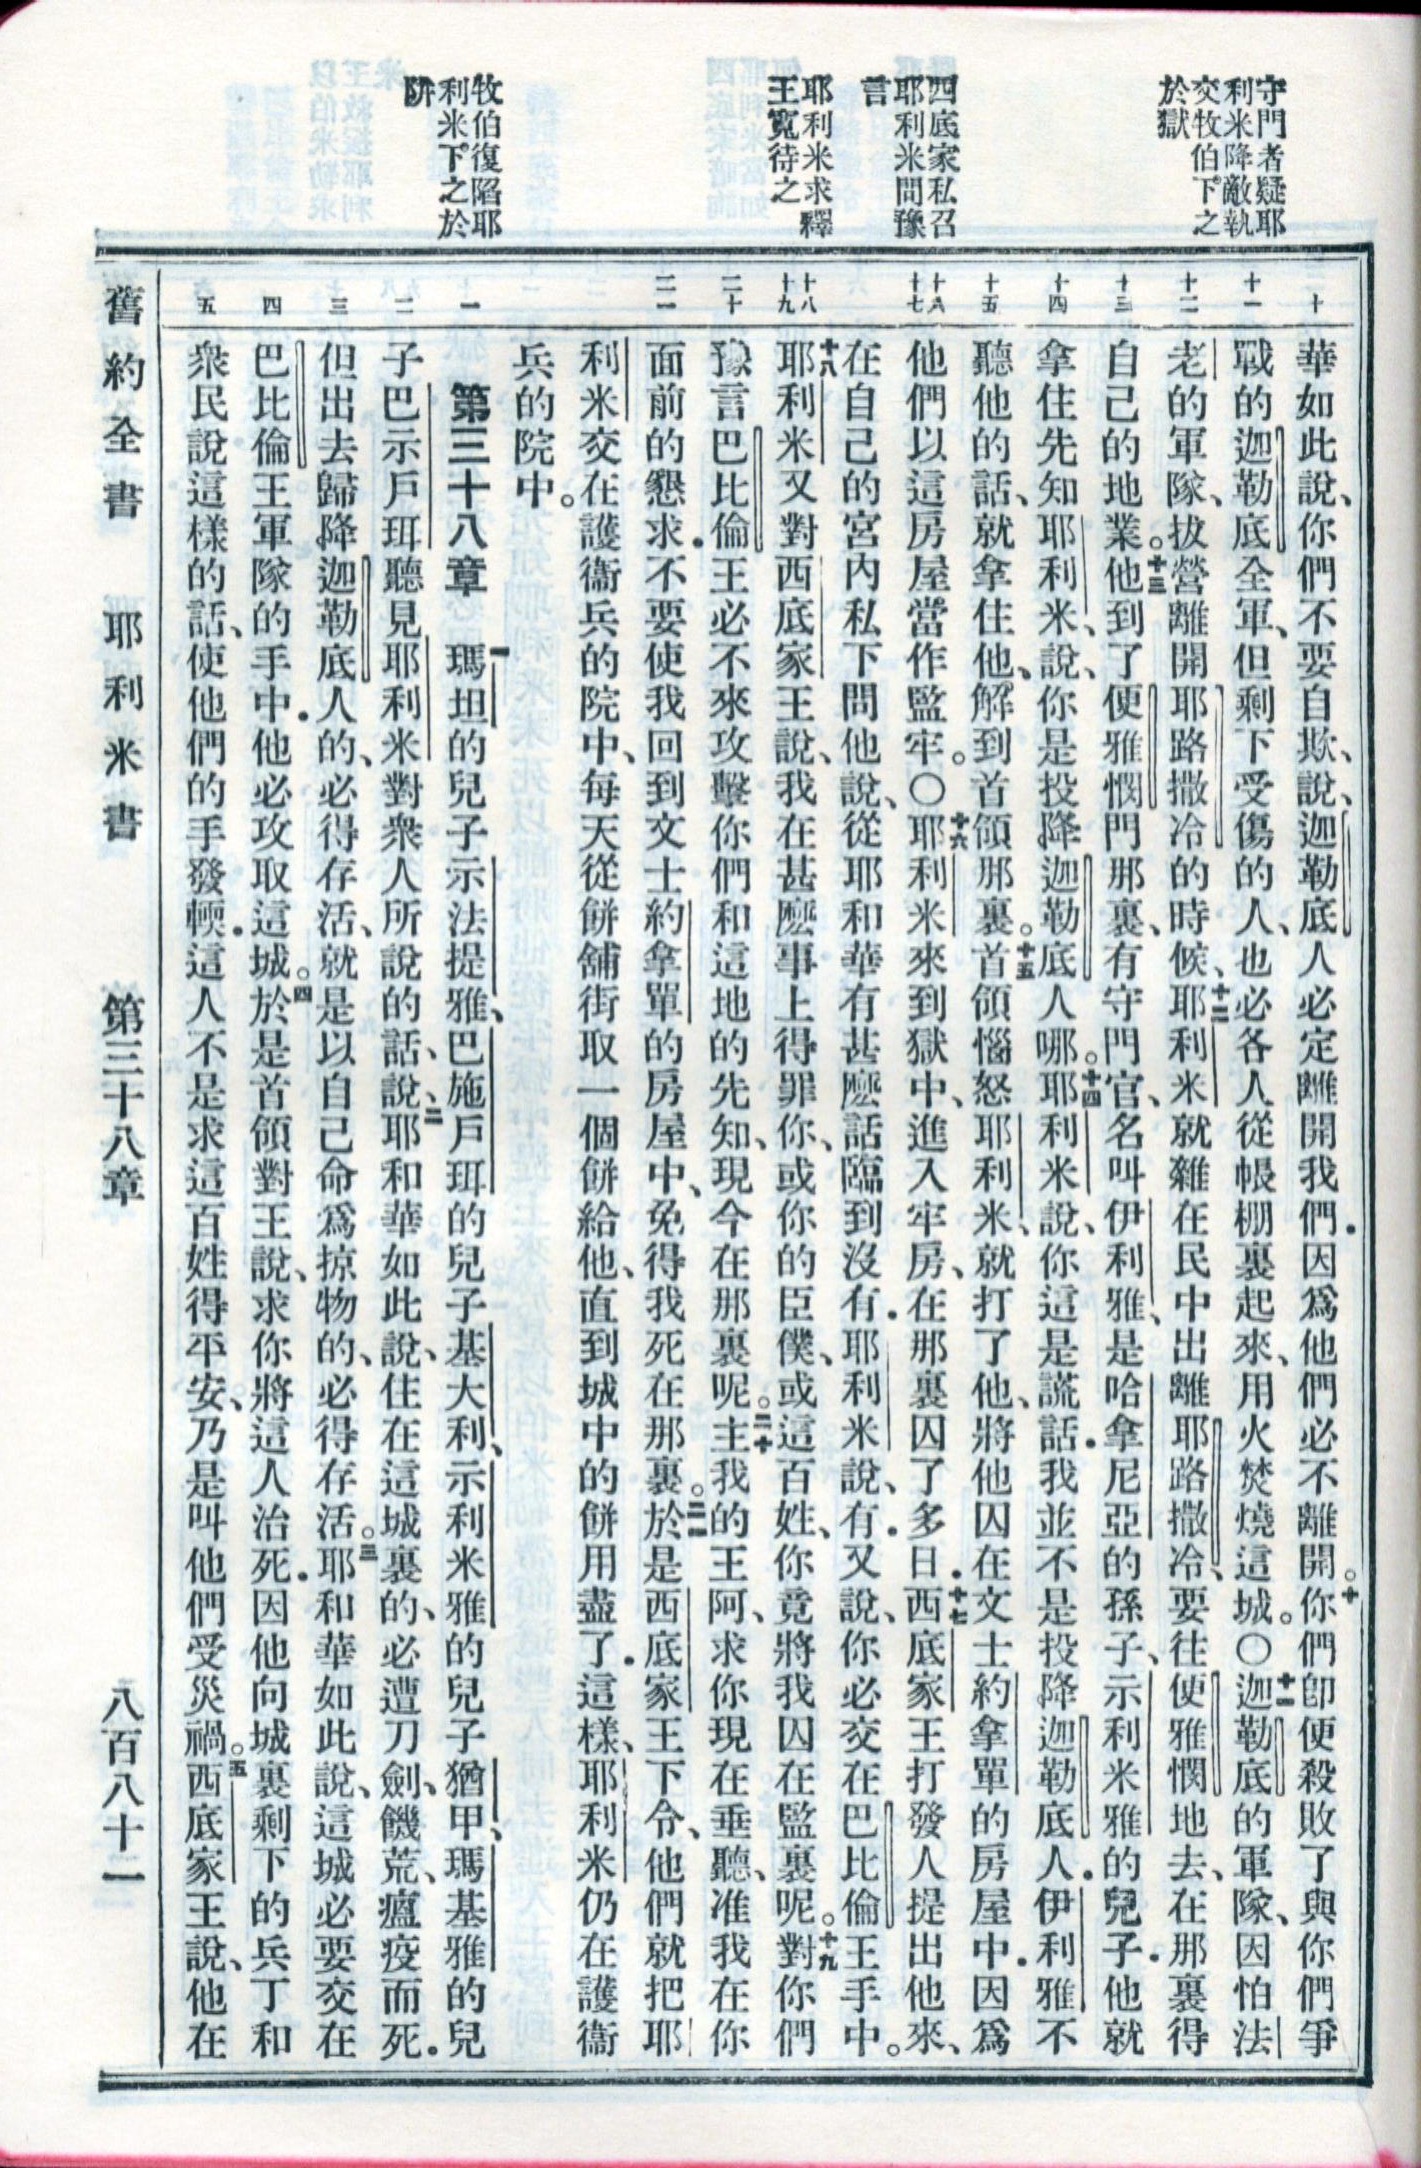 守門者疑耶
利米降敵執
交牧伯下之
於獄
西底家私召
耶利米問豫
言
耶利米求釋
王寬待之
牧伯復陷耶
利米下之於
阱
十
十一
十二
十三
十四
十五
十六
十七
十八
十九
二十
二一
一
二
三
四
五
華如此說、你們不要自欺、說、迦勒底人必定離開我們．因爲他們必不離開。十你們卽便殺敗了與你們爭
戰的迦勒底全軍、但剩下受傷的人、也必各人從帳棚裏起來、用火焚燒這城。〇十一迦勒底的軍隊、因怕法
老的軍隊、拔營離開耶路撒冷的時候、十二耶利米就雜在民中出離耶路撒冷、要往便雅憫地去、在那裏得
自己的地業。十三他到了便雅憫門那裏、有守門官、名叫伊利雅、是哈拿尼亞的孫子、示利米雅的兒子．他就
拿住先知耶利米、說、你是投降迦勒底人哪。十四耶利米說、你這是謊話．我並不是投降迦勒底人．伊利雅不
聽他的話、就拿住他、解到首領那裏。十五首領惱怒耶利米、就打了他、將他囚在文士約拿單的房屋中．因爲
他們以這房屋當作監牢。〇十六耶利米來到獄中、進入牢房、在那裏囚了多日．十七西底家王打發人提出他來、
在自己的宮內私下問他說、從耶和華有甚麼話臨到沒有．耶利米說、有．又說、你必交在巴比倫王手中。
十八耶利米又對西底家王說、我在甚麼事上得罪你、或你的臣僕、或這百姓、你竟將我囚在監裏呢。十九對你們
豫言巴比倫王必不來攻擊你們和這地的先知、現今在那裏呢。二十主我的王阿、求你現在垂聽、准我在你
面前的懇求．不要使我回到文士約拿單的房屋中、免得我死在那裏。二一於是西底家王下令、他們就把耶
利米交在護衞兵的院中、每天從餅舖街取一個餅給他、直到城中的餅用盡了．這樣、耶利米仍在護衞
兵的院中。
第三十八章 一瑪坦的兒子示法提雅、巴施戶珥的兒子基大利、示利米雅的兒子猶甲、瑪基雅的兒
子巴示戶珥聽見耶利米對衆人所說的話、說、二耶和華如此說、住在這城裏的、必遭刀劍、饑荒、瘟疫而死．
但出去歸降迦勒底人的、必得存活、就是以自己命爲掠物的、必得存活。三耶和華如此說、這城必要交在
巴比倫王軍隊的手中．他必攻取這城。四於是首領對王說、求你將這人治死．因他向城裏剩下的兵丁和
衆民說這樣的話、使他們的手發輭．這人不是求這百姓得平安、乃是叫他們受災禍。五西底家王說、他在
舊約全書 耶利米書 第三十八章 八百八十二